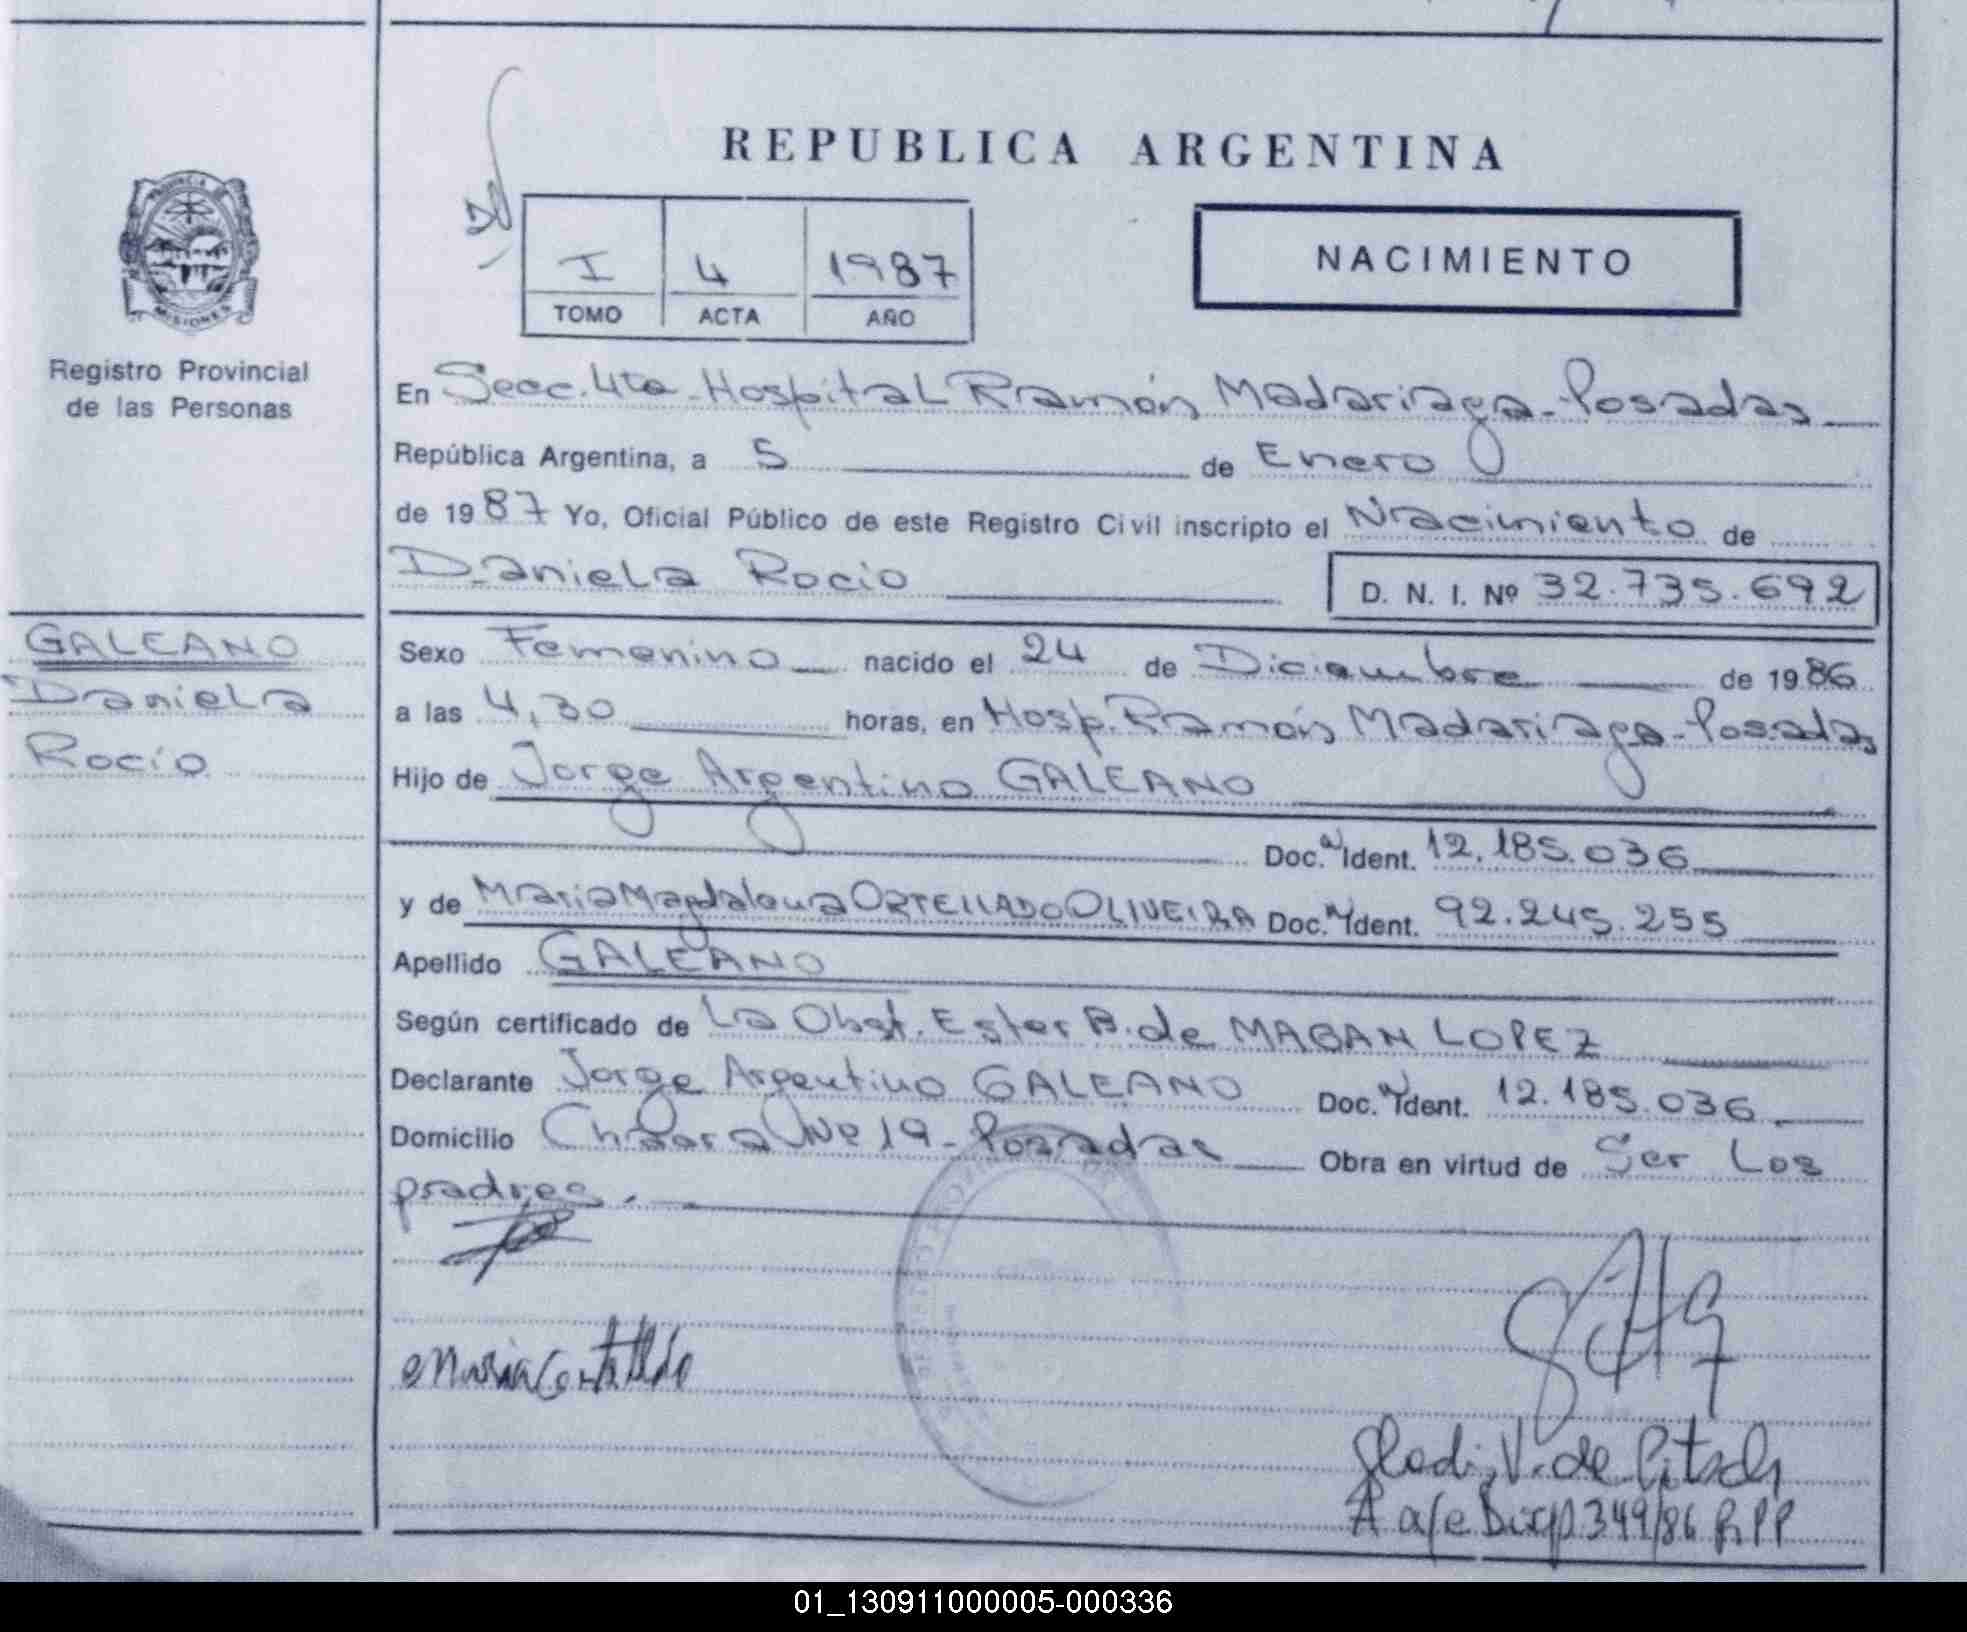 REPUBLICA ARGENTINA
PROVINCIA DE
MISIONES
Registro Provincial
de las Personas
I 4 1987
TOMO ACTA AÑO
NACIMIENTO
En Secc. 4ta - Hospital Ramón Madariaga - Posadas
República Argentina, a 5 de Enero
de 1987 Yo, Oficial Público de este Registro Civil inscripto el Nacimiento de
Daniela Rocio D. N. I. Nº 32.735.692
GALEANO
Daniela
Rocío
Sexo Femenino nacido el 24 de Diciembre de 1986
a las 4,30 horas, en Hosp. Ramón Madariaga - Posadas
Hijo de Jorge Argentino GALEANO
Doc. Ident. 12.185.036
y de Maria Magdalena ORTELLADO OLIVEIRA Doc. Ident. 92.245.255
Apellido GALEANO
Según certificado de La Obst. Ester B. de MABAN LOPEZ
Declarante Jorge Argentino GALEANO Doc. Ident. 12.185.036
Domicilio Chacra Nº 19 - Posadas Obra en virtud de Ser Los
padres.
de
349/86
01_130911000005-000336